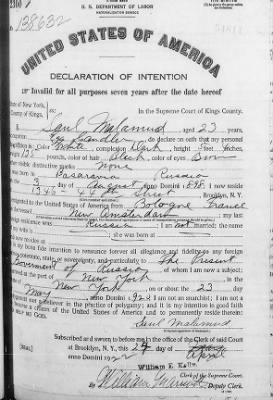 U. S. DEPARTMENT OF LABOR
NATURALIZATION SERVICE
No. 138632
UNITED STATES OF AMERICA
DECLARATION OF INTENTION
Invalid for all purposes seven years after the date hereof
State of New York,
County of Kings,
In the Supreme Court of Kings County.
I, Saul Malamud, aged 23 years,
occupation, do declare on oath that my personal
description is: Color White, complexion Dark, height 5 feet inches,
weight pounds, color of hair Black, color of eyes Brown
other visible distinctive marks None
Russia
on the 2 day of August, anno Domini 1898; I now reside
at Street, Brooklyn, N. Y.
I emigrated to the United States of America from Bologne France
on the vessel New Amsterdam; my last
foreign residence was Russia; I am not married; the name
she was born at
It is my bona fide intention to renounce forever all allegiance and fidelity to any foreign
prince, potentate, state, or sovereignty, and particularly to The Present
Government of Russia, of whom I am now a subject;
I arrived at the port of New York, in the
State of New York, on or about the 23 day
of May, anno Domini 192; I am not an anarchist; I am not a
polygamist nor a believer in the practice of polygamy; and it is my intention in good faith
to become a citizen of the United States of America and to permanently reside therein:
SO HELP ME GOD.
Saul Malamud
Subscribed and sworn to before me in the office of the Clerk of said Court
[SEAL] at Brooklyn, N. Y., this 24 day of April
anno Domini 1922
William E. Kelly
Clerk of the Supreme Court.
By William Deputy Clerk.